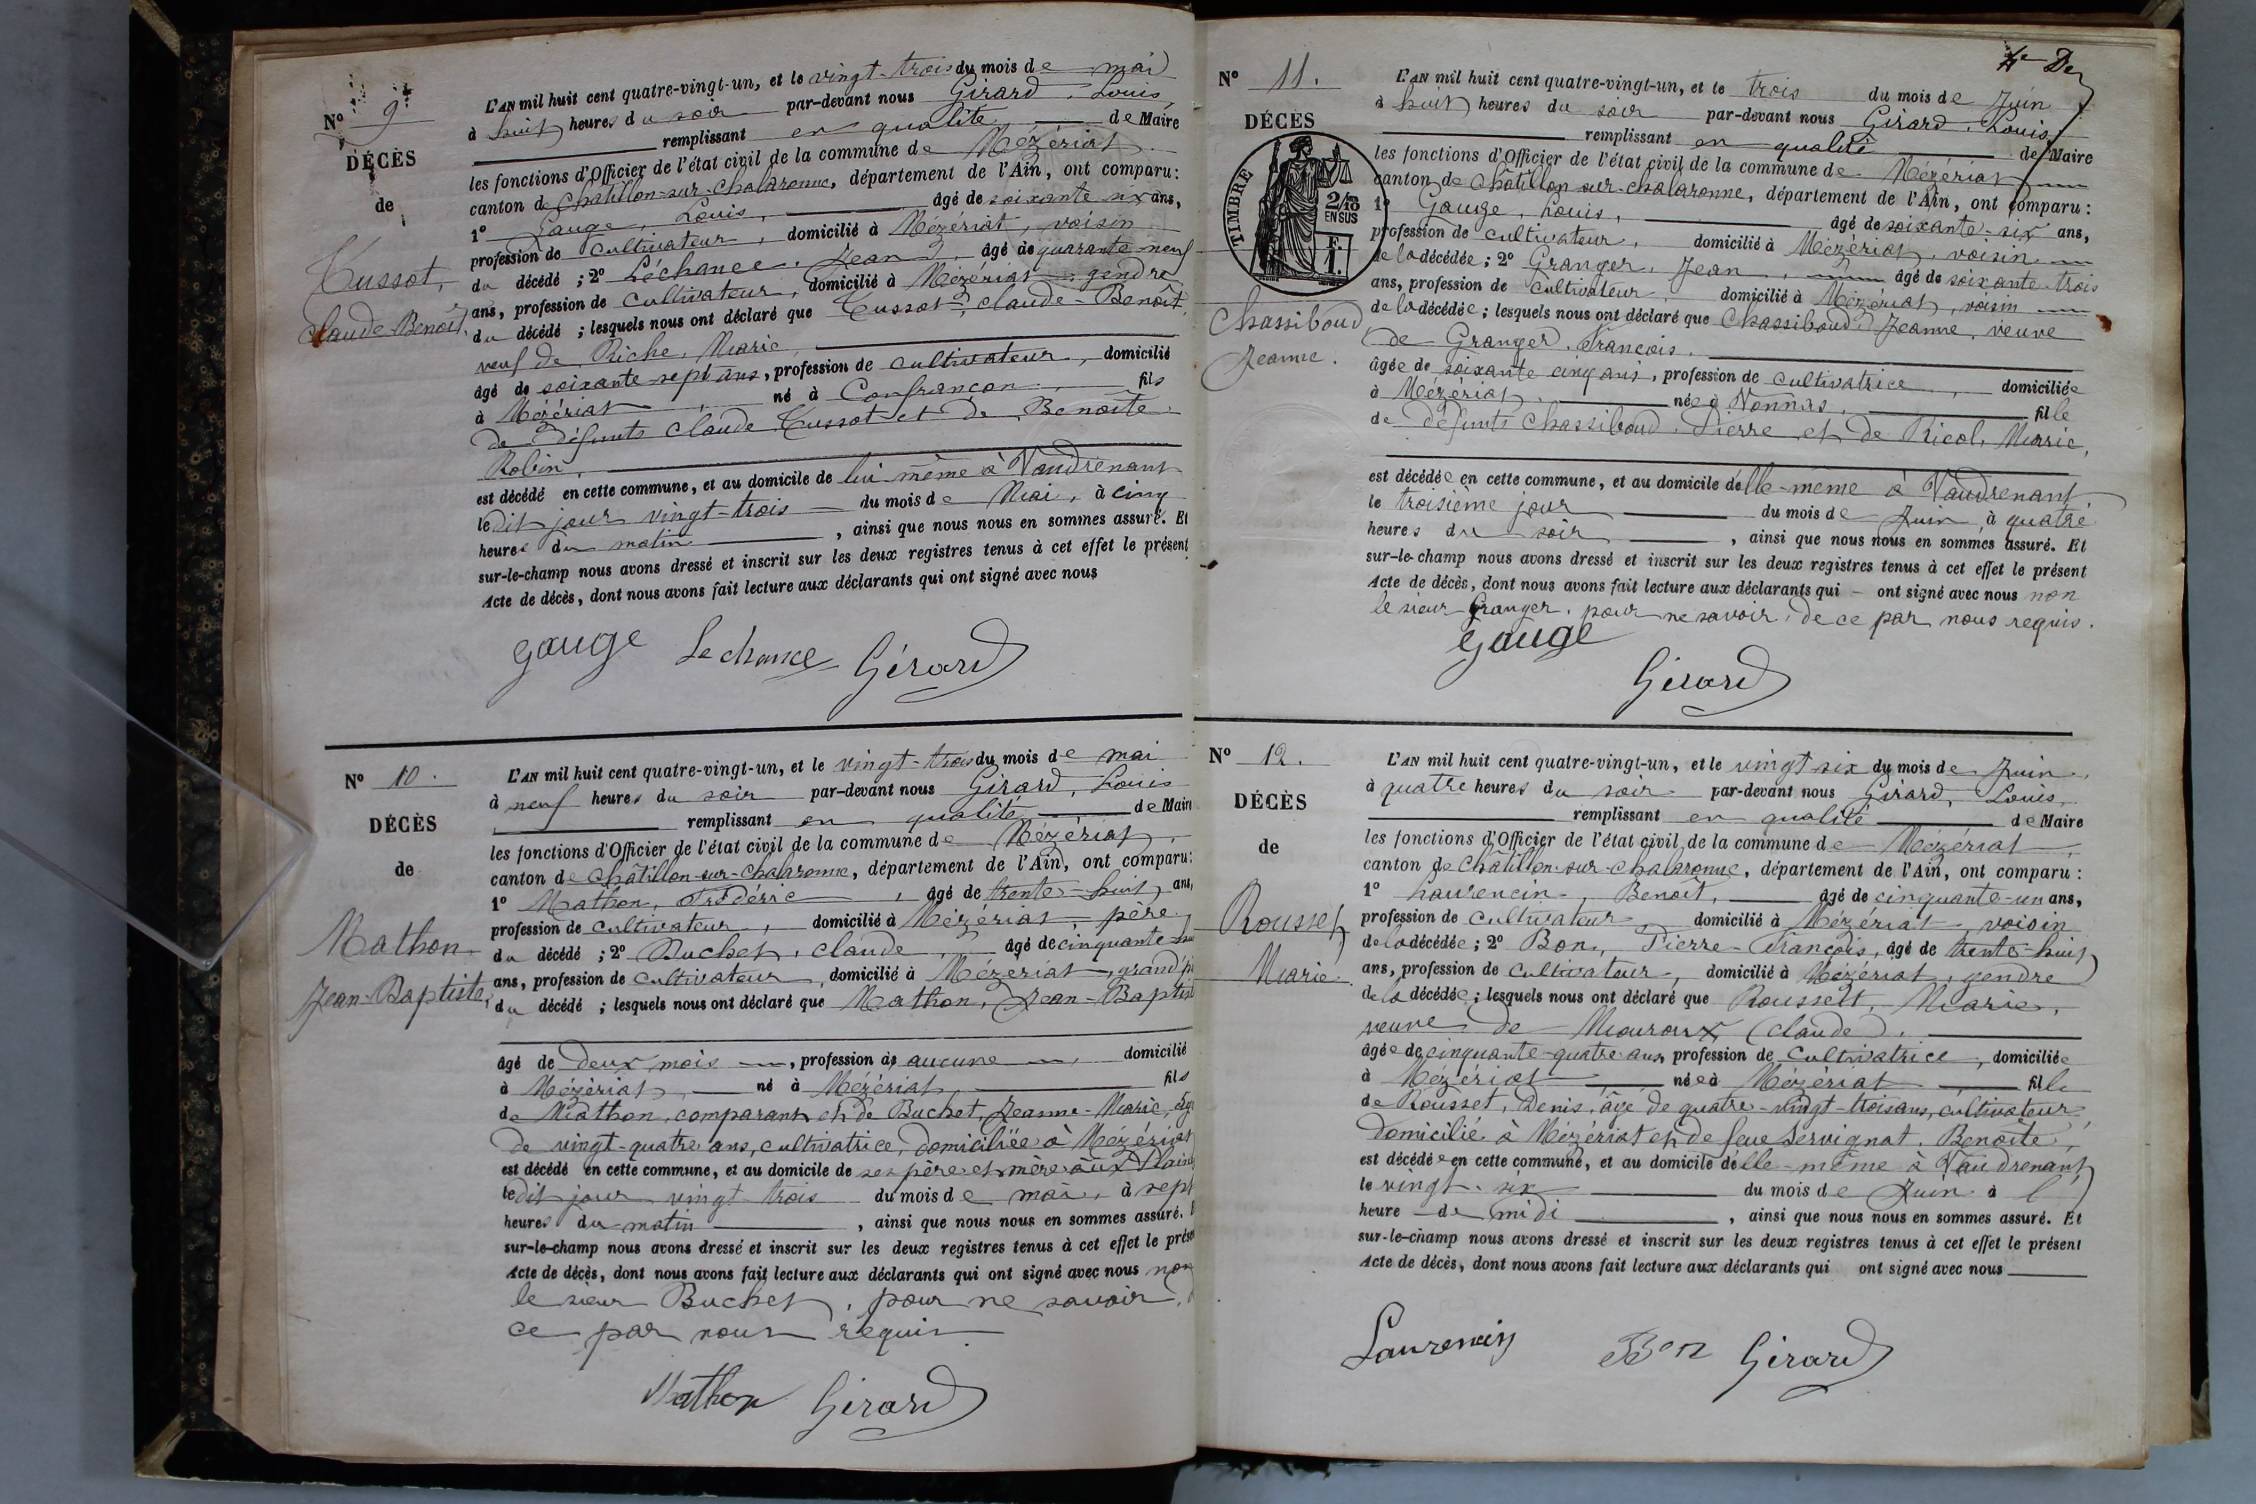 Nº 9
DÉCÈS
de
Tussot,
Claude Benoît.
L'AN mil huit cent quatre-vingt-un, et le vingt-trois du mois de mai
à huit heures du soir par-devant nous Girard, Louis
remplissant en qualité de Maire
les fonctions d'Officier de l'état civil de la commune de Mézériat.
canton de Châtillon-sur-Chalaronne, département de l'Ain, ont comparu:
1º Gauge, Louis, âgé de soixante six ans,
profession de cultivateur, domicilié à Mézériat, voisin
du décédé ; 2º Léchance, Jean, âgé de quarante-neuf
ans, profession de cultivateur, domicilié à Mézériat, gendre
du décédé ; lesquels nous ont déclaré que Tussot, Claude-Benoît,
veuf de Riche, Marie,
âgé de soixante-sept ans, profession de cultivateur, domicilié
à Mézériat, né à Confrançon, fils
de défunts Claude Tussot et de Benoîte
Robin,
est décédé en cette commune, et au domicile de lui même à Vaudrenant
ledit jour vingt-trois du mois de Mai, à cinq
heures du matin, ainsi que nous nous en sommes assuré. Et
sur-le-champ nous avons dressé et inscrit sur les deux registres tenus à cet effet le présent
Acte de décès, dont nous avons fait lecture aux déclarants qui ont signé avec nous
gauge Lechance Girard
Nº 10.
DÉCÈS
de
Mathon
Jean-Baptiste,
L'AN mil huit cent quatre-vingt-un, et le vingt-trois du mois de mai
à neuf heures du soir par-devant nous Girard, Louis
remplissant en qualité de Maire
les fonctions d'Officier de l'état civil de la commune de Mézériat,
canton de Châtillon-sur-Chalaronne, département de l'Ain, ont comparu:
1º Mathon, Frédéric, âgé de trente-huit ans,
profession de cultivateur, domicilié à Mézériat, père
du décédé ; 2º Buchet, Claude, âgé de cinquante
ans, profession de cultivateur, domicilié à Mézériat,
du décédé ; lesquels nous ont déclaré que Mathon, Jean-Baptist
âgé de deux mois, profession de aucune, domicilié
à Mézériat, né à Mézériat, fils
de Mathon, comparant et de Buchet, Jeanne-Marie,
de vingt-quatre ans, cultivatrice, domiciliée à Mézériat
est décédé en cette commune, et au domicile de ses père et mère aux
ledit jour vingt trois du mois de mai, à sept
heures du matin, ainsi que nous nous en sommes assuré.
sur-le-champ nous avons dressé et inscrit sur les deux registres tenus à cet effet le prése
Acte de décès, dont nous avons fait lecture aux déclarants qui ont signé avec nous non
le sieur Buchet, pour ne savoir,
ce par nous requis
Mathon Girard
Nº 11.
DÉCÈS
TIMBRE
2/10
EN SUS
Chassiboud
Jeanne.
L'AN mil huit cent quatre-vingt-un, et le trois du mois de Juin
à huit heures du soir par-devant nous Girard, Louis
remplissant en qualité de Maire
les fonctions d'Officier de l'état civil de la commune de Mézériat
canton de Châtillon-sur-Chalaronne, département de l'Ain, ont comparu :
1º Gauge, Louis, âgé de soixante-six ans,
profession de cultivateur, domicilié à Mézériat, voisin
de la décédée ; 2º Granger, Jean, âgé de soixante-trois
ans, profession de cultivateur, domicilié à Mézériat, voisin
de la décédée ; lesquels nous ont déclaré que Chassiboud, Jeanne, veuve
de Granger, François.
âgée de soixante cinq ans, profession de cultivatrice, domiciliée
à Mézériat, née à Vonnas, fille
de défunts Chassiboud, Pierre et de Ricol, Marie,
est décédée en cette commune, et au domicile d'elle-même à Vaudrenant
le troisième jour du mois de Juin, à quatre
heures du soir, ainsi que nous nous en sommes assuré. Et
sur-le-champ nous avons dressé et inscrit sur les deux registres tenus à cet effet le présent
Acte de décès, dont nous avons fait lecture aux déclarants qui ont signé avec nous non
le sieur Granger, pour ne savoir, de ce par nous requis.
gauge
Girard
Nº 12.
DÉCÈS
de
Rousset,
Marie.
L'AN mil huit cent quatre-vingt-un, et le vingt six du mois de Juin,
à quatre heures du soir par-devant nous Girard, Louis,
remplissant en qualité de Maire
les fonctions d'Officier de l'état civil de la commune de Mézériat,
canton de Châtillon-sur-Chalaronne, département de l'Ain, ont comparu :
1º Laurencin, Benoît, âgé de cinquante-un ans,
profession de cultivateur domicilié à Mézériat, voisin
de la décédée ; 2º Bon, Pierre-François, âgé de trente-huit
ans, profession de cultivateur, domicilié à Mézériat, gendre
de la décédée ; lesquels nous ont déclaré que Rousset, Marie,
veuve de (Claude).
âgée de cinquante-quatre ans, profession de cultivatrice, domiciliée
à Mézériat, née à Mézériat, fille
de Rousset, Denis, âgé de quatre-vingt-trois ans, cultivateur,
domicilié à Mézériat et de feue Servignat, Benoîte,
est décédée en cette commune, et au domicile d'elle-même à Vaudrenant
le vingt-six du mois de Juin à l'
heure de midi, ainsi que nous nous en sommes assuré. Et
sur-le-champ nous avons dressé et inscrit sur les deux registres tenus à cet effet le présent
Acte de décès, dont nous avons fait lecture aux déclarants qui ont signé avec nous
Laurencin Bon Girard